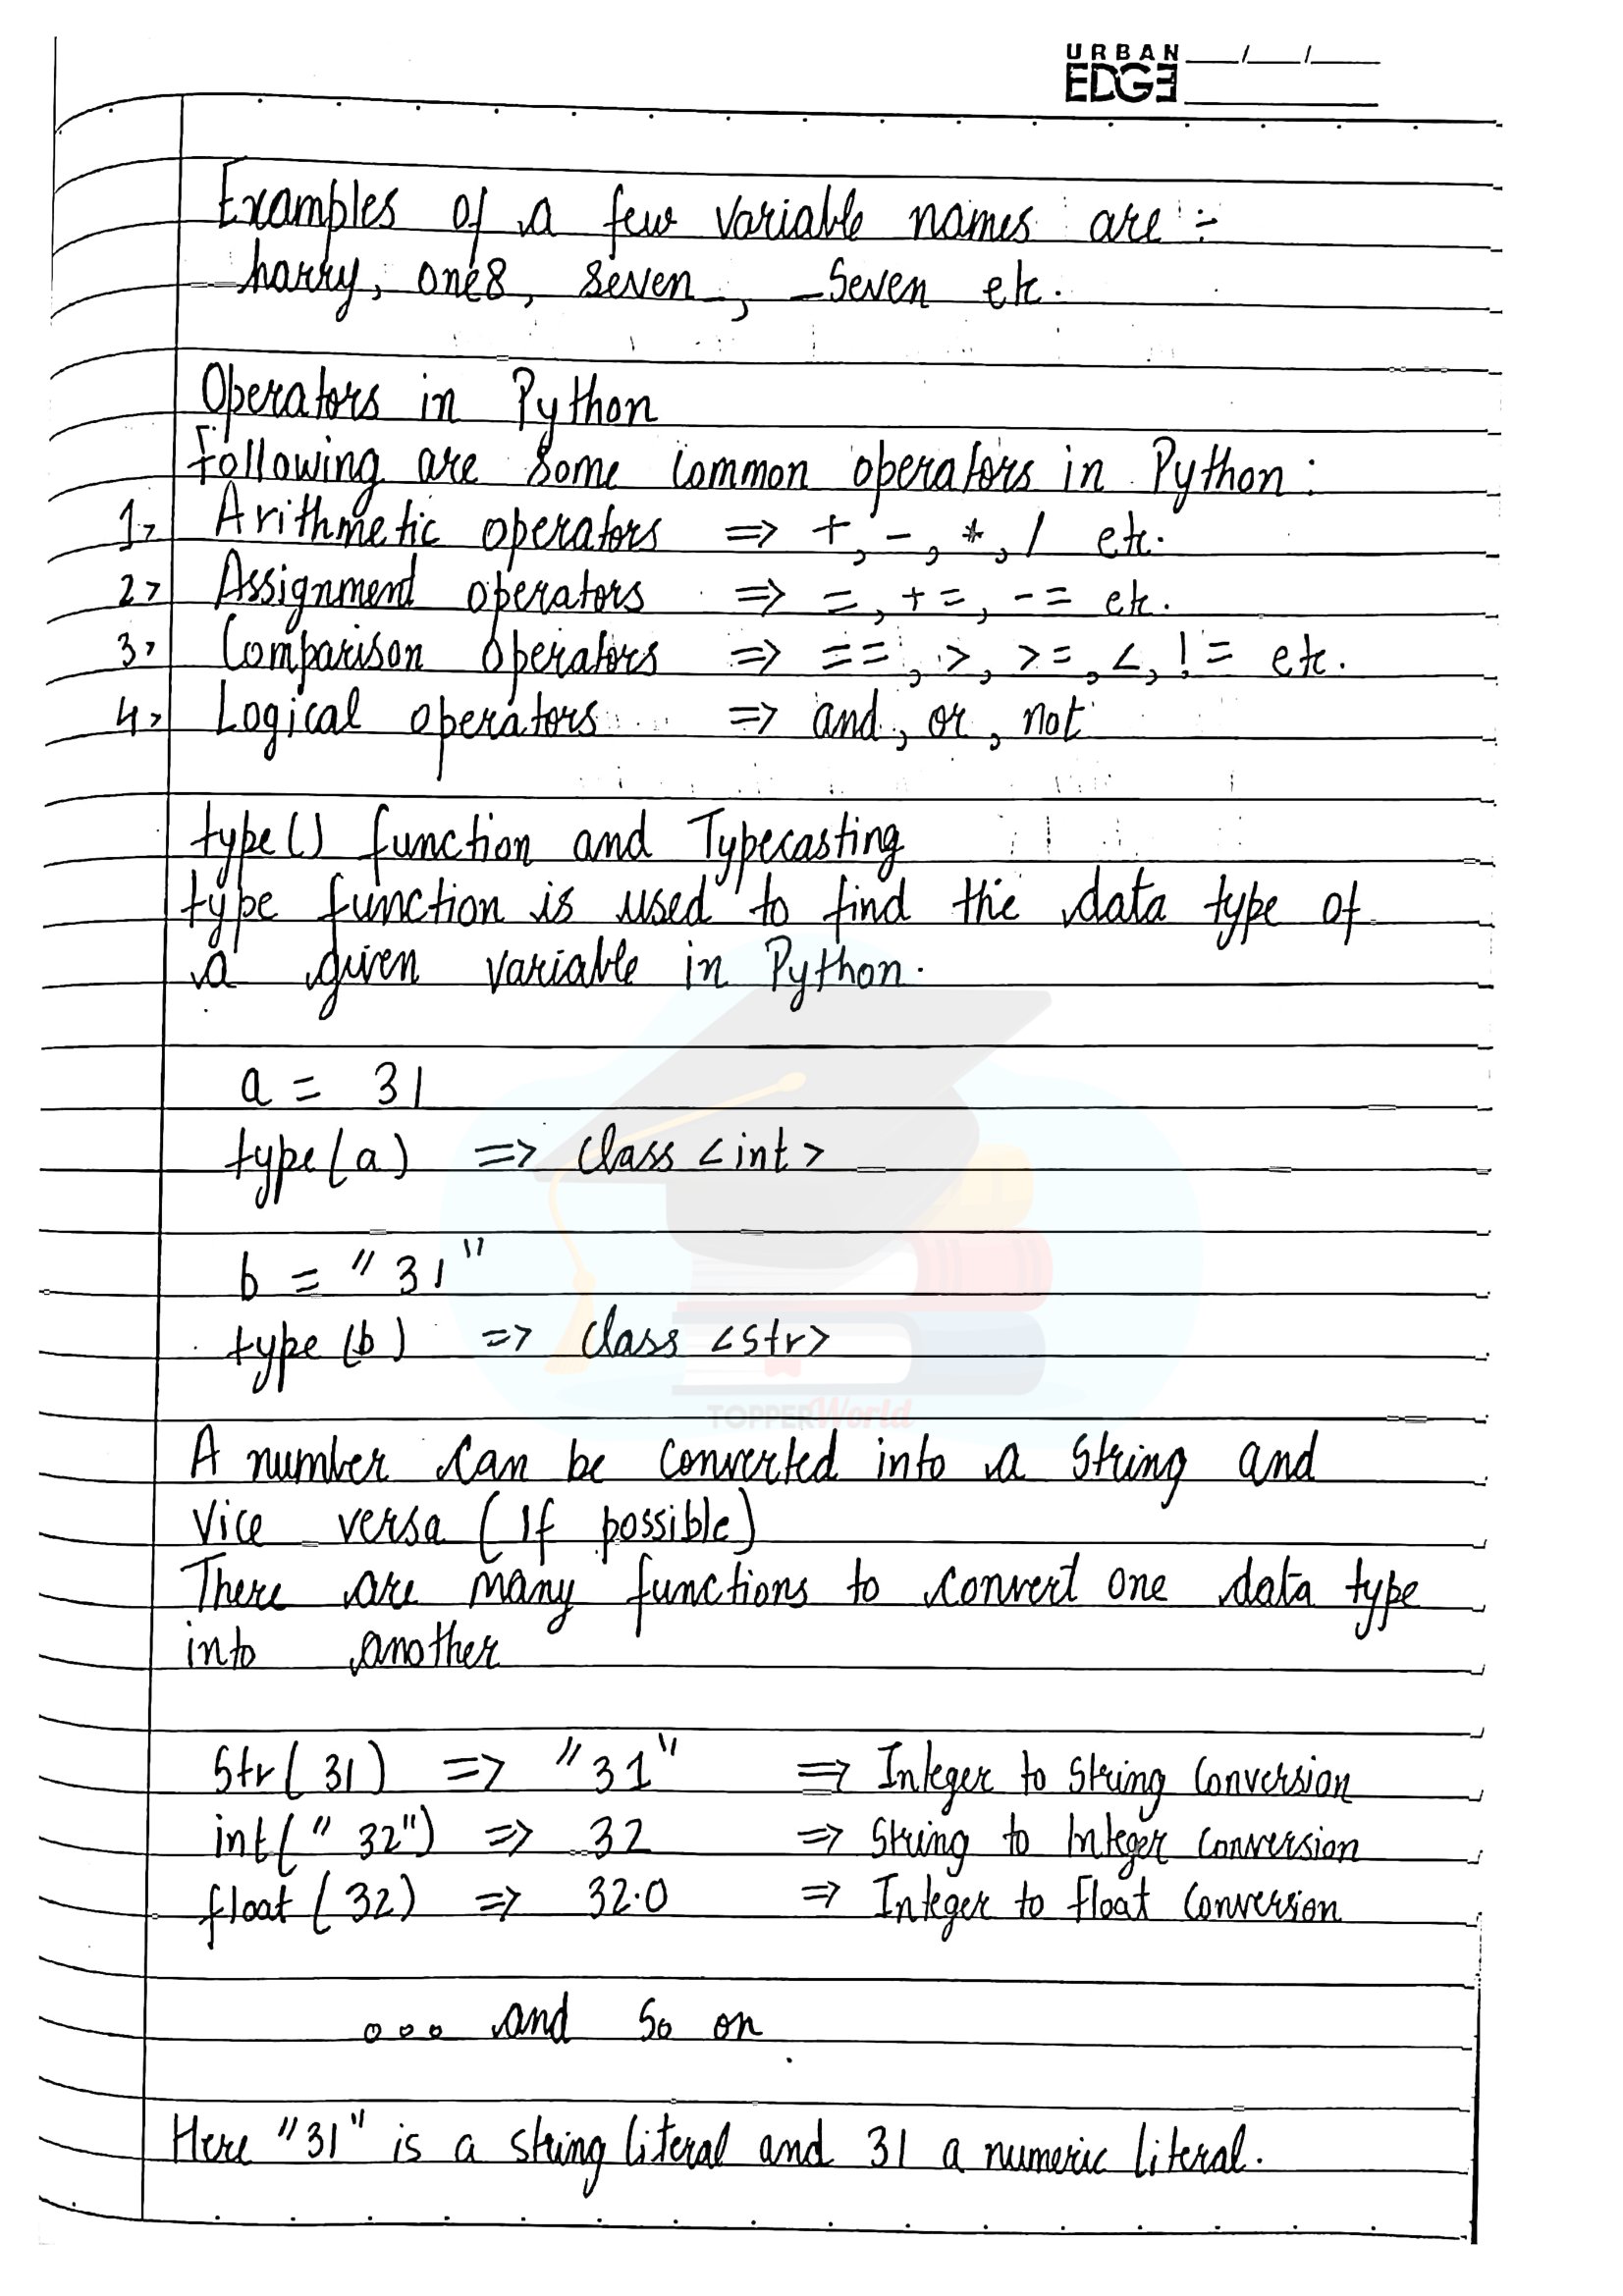 URBAN
EDGE __/__/__
Examples of a few variable names are :-
harry, one8, seven, _seven etc.
Operators in Python
Following are some common operators in Python :
1> Arithmetic operators => +, -, *, / etc.
2> Assignment operators => =, +=, -= etc.
3> Comparison operators => ==, >, >=, <, != etc.
4> Logical operators => and, or, not
type() function and Typecasting
type function is used to find the data type of
a given variable in Python.
a = 31
type(a) => class <int>
b = "31"
type(b) => class <str>
TOPPERWorld
A number can be converted into a string and
vice versa (If possible)
There are many functions to convert one data type
into another
Str(31) => "31" => Integer to string conversion
int("32") => 32 => String to Integer conversion
float(32) => 32.0 => Integer to float conversion
... and so on
Here "31" is a string literal and 31 a numeric literal.